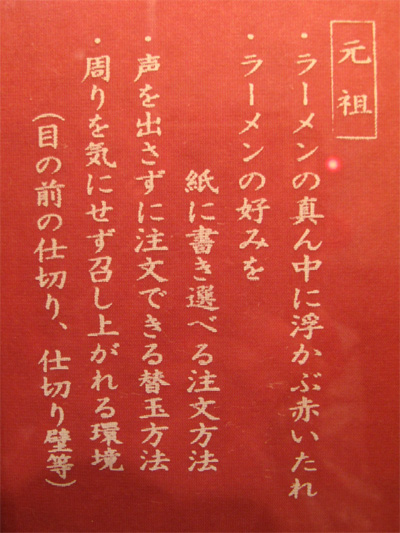 元祖
・ラーメンの真ん中に浮かぶ赤いたれ
・ラーメンの好みを
紙に書き選べる注文方法
・声を出さずに注文できる替玉方法
・周りを気にせず召し上がれる環境
（目の前の仕切り、仕切り壁等）